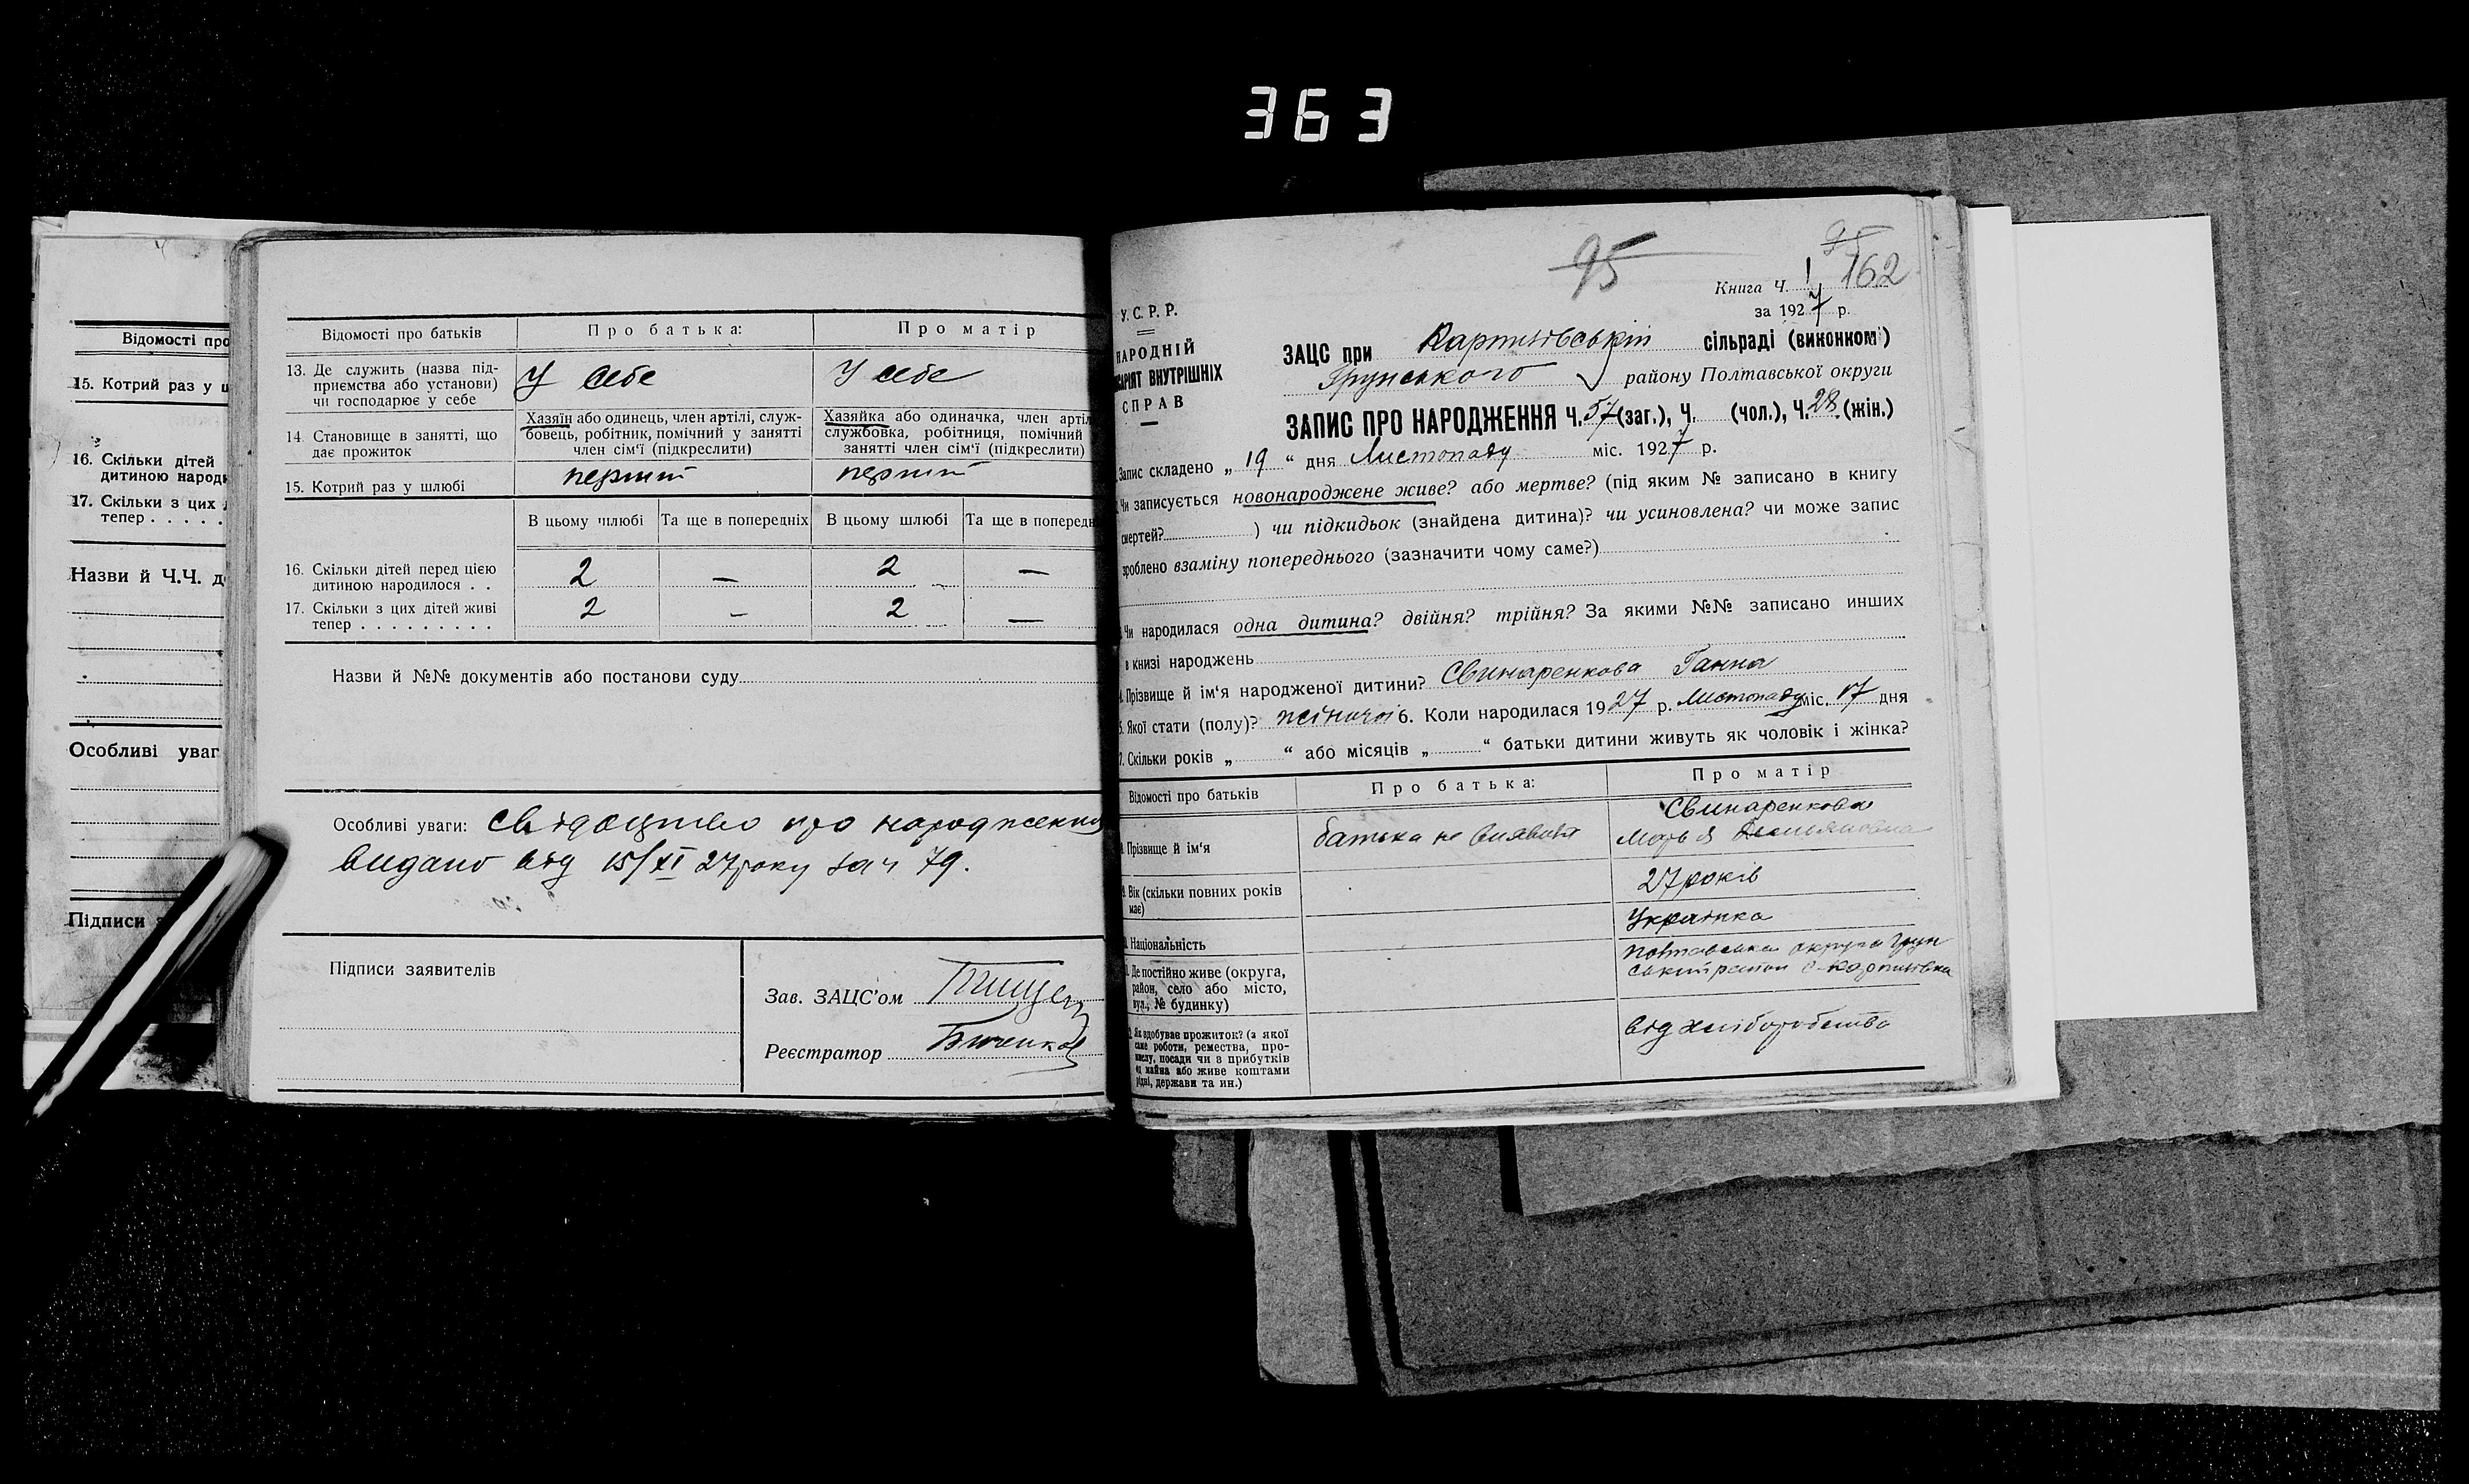 363
Відомості про
15. Котрий раз у ш
16. Скільки дітей
дитиною народи
17. Скільки з цих
тепер . . . . .
Назви й Ч.Ч. д
Особливі уваг
Підписи з
Відомості про батьків Про батька: Про матір
13. Де служить (назва під-
приємства або установи)
чи господарює у себе
У себе У себе
14. Становище в занятті, що
дає прожиток
Хазяїн або одинець, член артілі, служ-
бовець, робітник, помічний у занятті
член сім'ї (підкреслити)
Хазяйка або одиначка, член артіл
службовка, робітниця, помічний
занятті член сім'ї (підкреслити)
15. Котрий раз у шлюбі перший перший
В цьому шлюбі Та ще в попередніх В цьому шлюбі Та ще в попередн
16. Скільки дітей перед цією
дитиною народилося . . 2 — 2 —
17. Скільки з цих дітей живі
тепер . . . . . . . . . 2 — 2 —
Назви й №№ документів або постанови суду
Особливі уваги: Свідоцтво про народження
видано від 15/XI 27 року за ч 79.
Підписи заявителів
Зав. ЗАЦС'ом
Реєстратор
95
95
162
Книга Ч. 1
за 1927 р.
У.С.Р.Р.
НАРОДНІЙ
САРІЯТ ВНУТРІШНІХ
СПРАВ
ЗАЦС при Карпилівській сільраді (виконком)
Грунського району Полтавської округи
ЗАПИС ПРО НАРОДЖЕННЯ Ч. 57 (заг.), Ч. (чол.), Ч. 28 (жін.)
Запис складено „ 19 “ дня Листопаду міс. 1927 р.
Чи записується новонароджене живе? або мертве? (під яким № записано в книгу
смертей? ) чи підкидьок (знайдена дитина)? чи усиновлена? чи може запис
зроблено взаміну попереднього (зазначити чому саме?)
Чи народилася одна дитина? двійня? трійня? За якими №№ записано инших
в книзі народжень
4. Прізвище й ім'я народженої дитини? Свинаренкова Ганна
5. Якої стати (полу)? жіночої 6. Коли народилася 1927 р. Листопаду міс. 17 дня
7. Скільки років „ “ або місяців „ “ батьки дитини живуть як чоловік і жінка?
Відомості про батьків Про батька: Про матір
Прізвище й ім'я батька не виявил Свинаренкова
Марья
Вік (скільки повних років
має)
27 років
Національність Українка
Де постійно живе (округа,
район, село або місто,
вул., № будинку)
Полтавська округа Грун
ський район с. Карпилівка
Як здобуває прожиток? (з якої
саме роботи, ремества, про-
мислу, посади чи з прибутків
од майна або живе коштами
рідні, держави та ин.)
від хліборобства